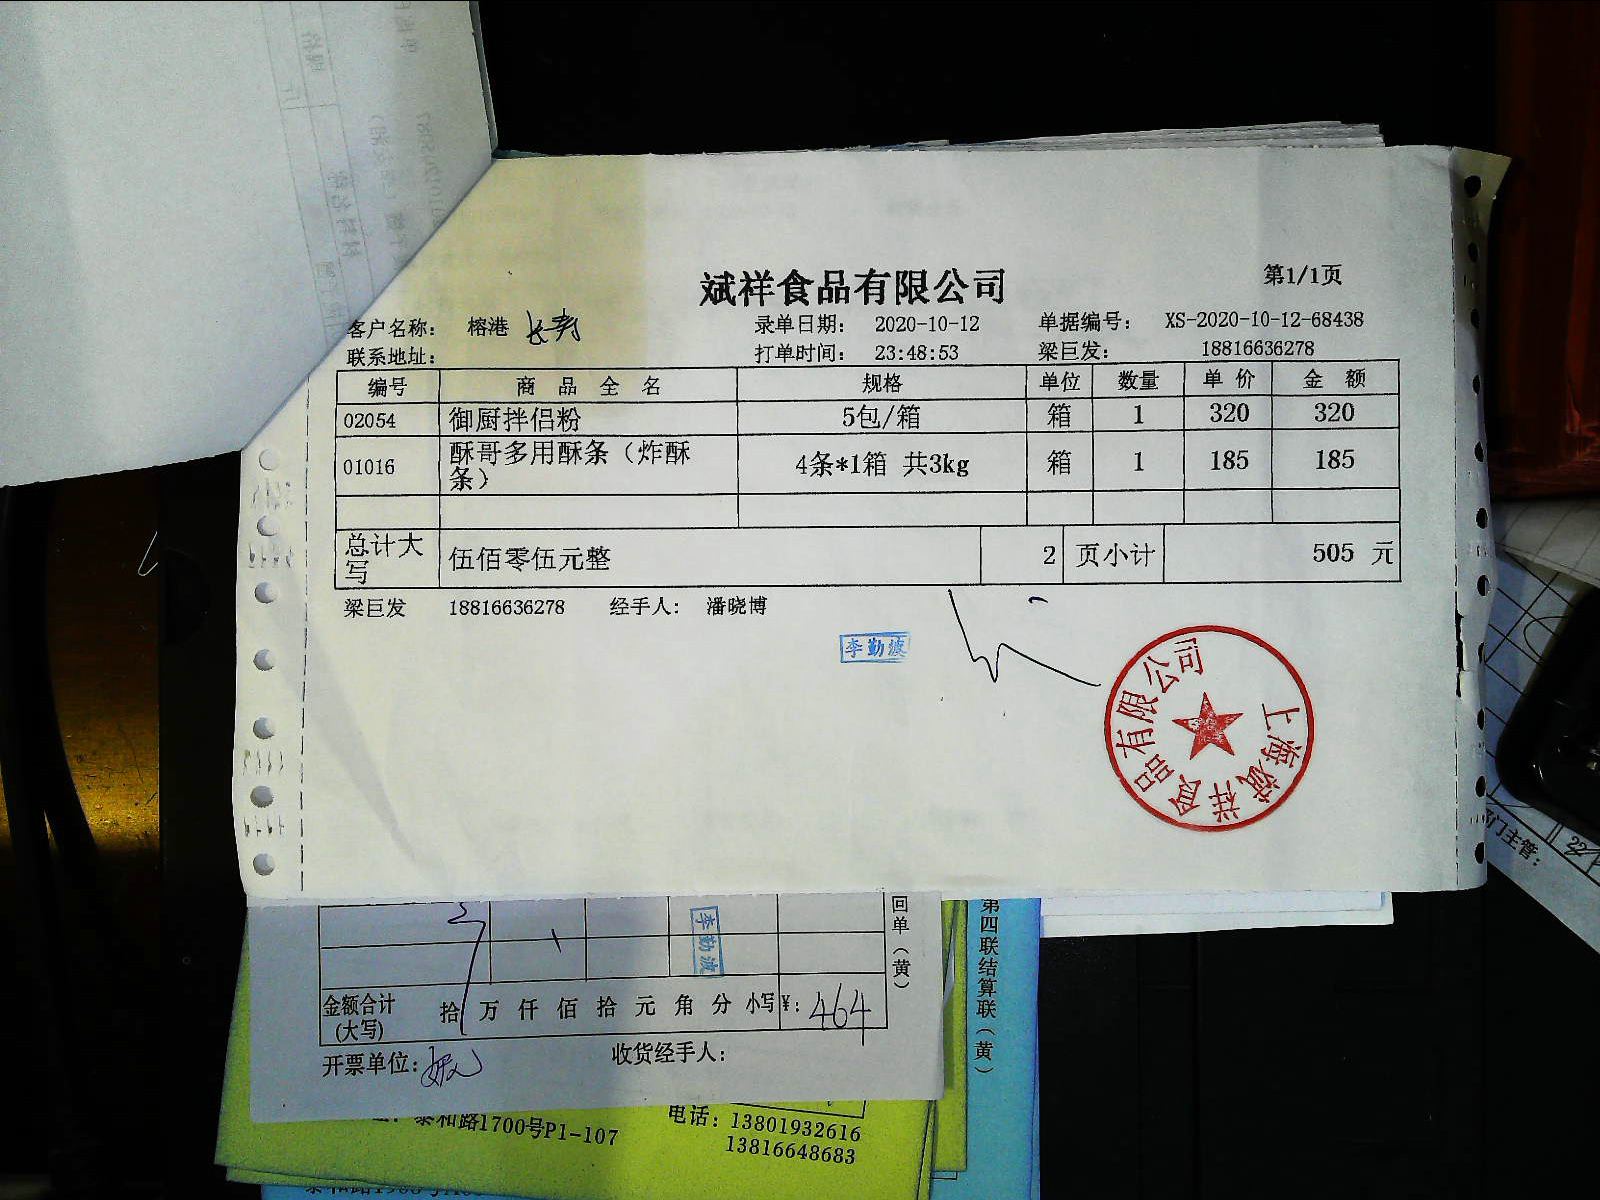 斌祥食品有限公司
第1/1页
客户名称： 榕港 长寿 录单日期： 2020-10-12 单据编号： XS-2020-10-12-68438
联系地址： 打单时间： 23:48:53 梁巨发： 18816636278
编号 商品全名 规格 单位 数量 单价 金额
02054 御厨拌侣粉 5包/箱 箱 1 320 320
01016 酥哥多用酥条（炸酥条） 4条*1箱 共3kg 箱 1 185 185
总计大写 伍佰零伍元整 2 页小计 505 元
梁巨发 18816636278 经手人： 潘晓博
李勤波
上海斌祥食品有限公司
李勤波
回单（黄）
第四联结算联（黄）
金额合计(大写) 拾 万 仟 佰 拾 元 角 分 小写 ¥： 464
开票单位： 收货经手人：
泰和路1700号P1-107
电话：13801932616
13816648683
部门主管：